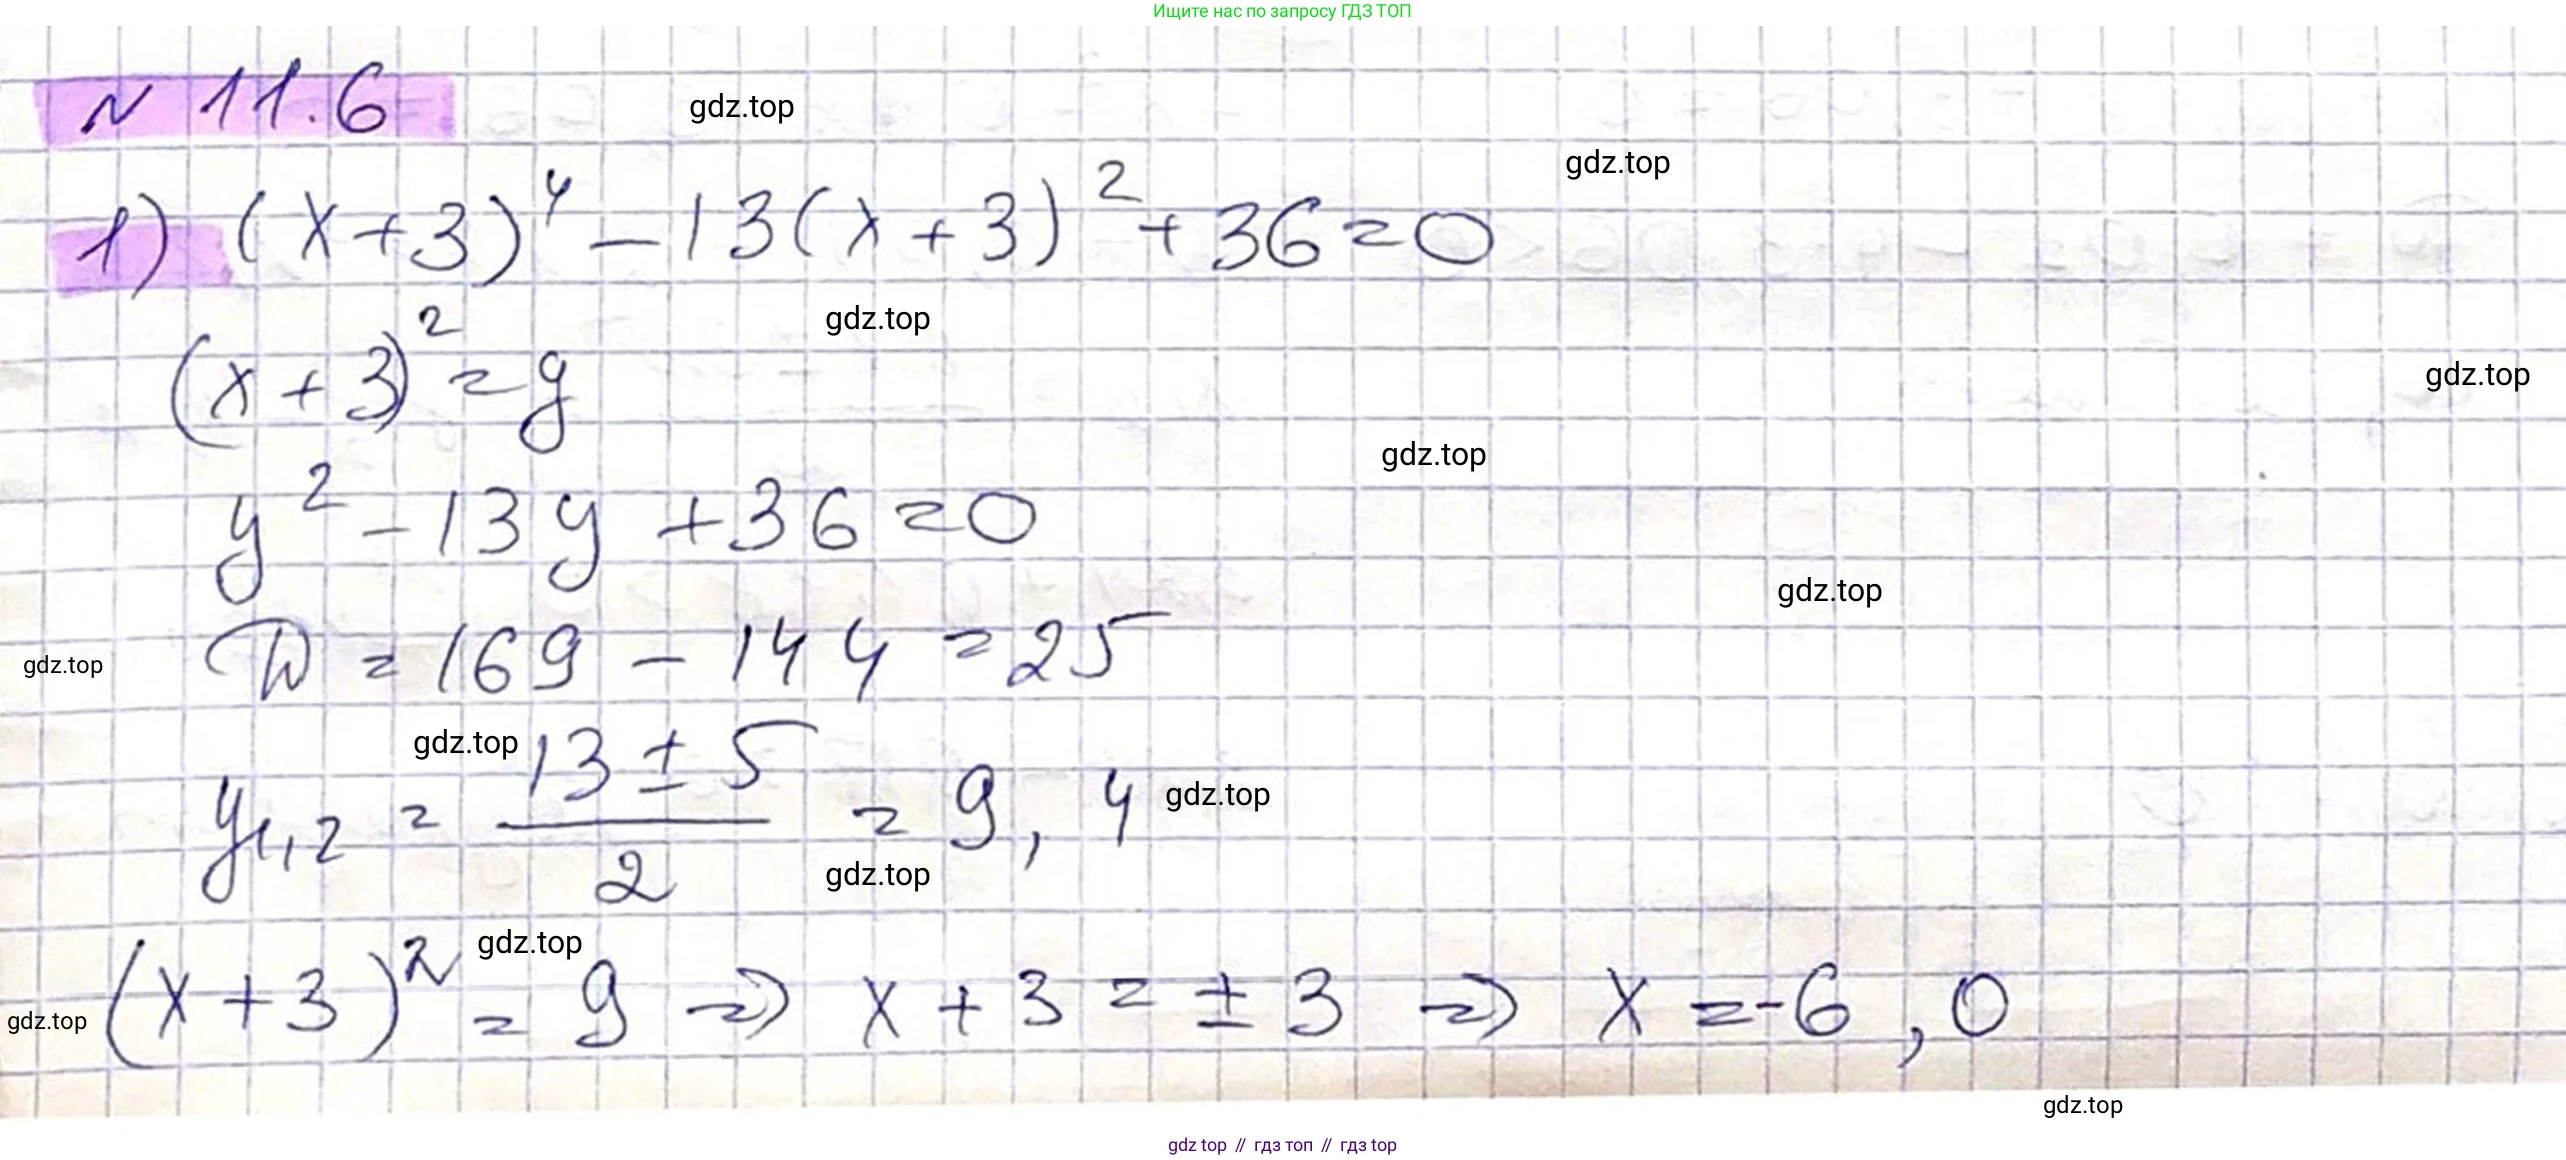 Ищите нас по запросу ГДЗ ТОП
N 11.6
gdz.top
gdz.top
1) (x+3)⁴ − 13(x+3)² + 36 = 0
gdz.top
(x+3)² = y
gdz.top
gdz.top
y² − 13y + 36 = 0
gdz.top
D = 169 − 144 = 25
gdz.top
gdz.top
y₁,₂ = (13 ± 5)/2 = 9, 4
gdz.top
gdz.top
gdz.top
(x+3)² = 9 ⇒ x+3 = ±3 ⇒ x = −6, 0
gdz.top
gdz.top
gdz top // гдз топ // гдз top